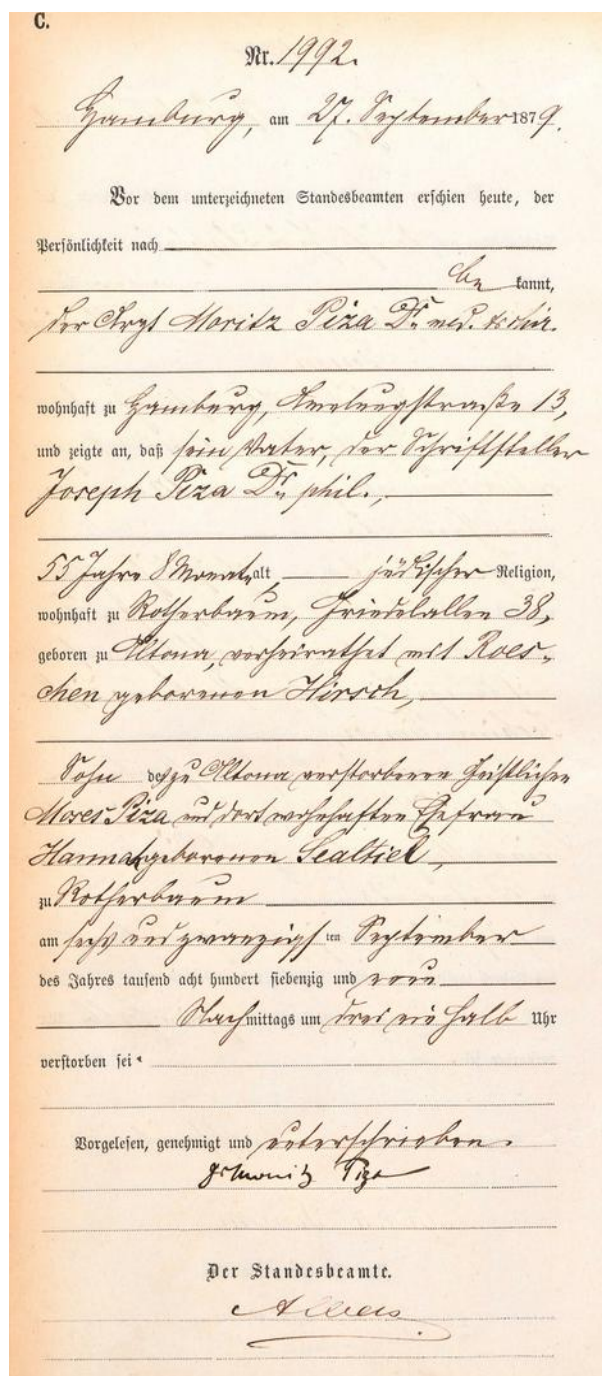 C.
Nr. 1992.
Hamburg, am 27. September 1879.
Vor dem unterzeichneten Standesbeamten erschien heute, der
Persönlichkeit nach
be kannt,
der Arzt Moritz Piza Dr. med. & chir.
wohnhaft zu Hamburg, Amelungstraße 13,
und zeigte an, daß sein Vater, der Schriftsteller
Joseph Piza Dr. phil.,
55 Jahre 8 Monate alt, jüdischer Religion,
wohnhaft zu Rotherbaum, Grindelallee 38,
geboren zu Altona, verheirathet mit Roes-
chen geborenen Hirsch,
Sohn des zu Altona verstorbenen Geistlichen
Moses Piza und dort wohnhaften Ehefrau
Hannah geborenen Sealtiel,
zu Rotherbaum
am sechs und zwanzigs ten September
des Jahres tausend acht hundert siebenzig und neun
Nachmittags um drei ein halb Uhr
verstorben sei.
Vorgelesen, genehmigt und unterschrieben.
Dr Moritz Piza
Der Standesbeamte.